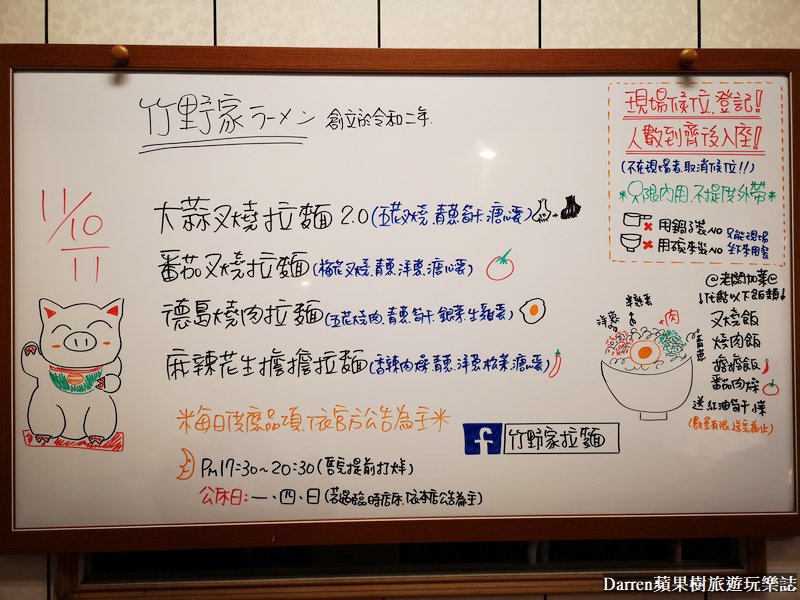 竹野家ラーメン 創立於令和二年.
11/10
11
大蒜叉燒拉麵 2.0 (五花叉燒.青蔥.筍干.溏心蛋)
番茄叉燒拉麵 (梅花叉燒.青蔥.洋蔥.溏心蛋)
德島燒肉拉麵 (五花燒肉.青蔥.筍干.銀菜.生雞蛋)
麻辣花生擔擔拉麵 (香辣肉燥.青蔥.洋蔥.松菜.溏心蛋)
※每日限定品項,依官方公告為主※
f 竹野家拉麵
PM17:30~20:30 (售完提前打烊)
公休日:一、四、日 (若遇臨時店休.依本店公告為主)
現場候位,登記!
人數到齊後入座!
(不在現場者,取消候位!!)
*只限內用,不提供外帶*
用鍋子裝NO 只能現場
用碗來裝NO 坐下來用餐
@老闆加菜@
↓任點以下飯類↓
叉燒飯
燒肉飯
擔擔飯
番茄肉燥
送紅油筍干1樣
(數量有限,送完為止)
半熟蛋
洋蔥
+肉
青蔥
Darren蘋果樹旅遊玩樂誌